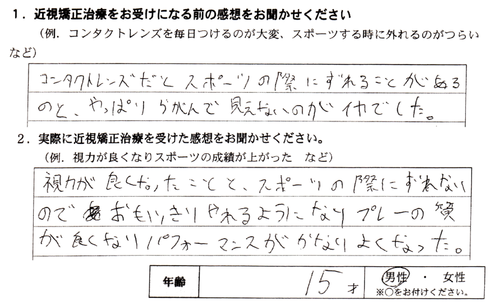 1．近視矯正治療をお受けになる前の感想をお聞かせください
（例．コンタクトレンズを毎日つけるのが大変、スポーツする時に外れるのがつらい
など）
コンタクトレンズだと スポーツの際にずれることがある
のと、やっぱり らがんで 見えないのがイヤでした。
2．実際に近視矯正治療を受けた感想をお聞かせください。
（例．視力が良くなりスポーツの成績が上がった　など）
視力が 良くなったことと、スポーツの際にずれない
ので おもいっきり やれるようになり プレーの質
が良くなり パフォーマンスが かなり よくなった。
年齢 15才 男性 ・ 女性
※○をお付けください。